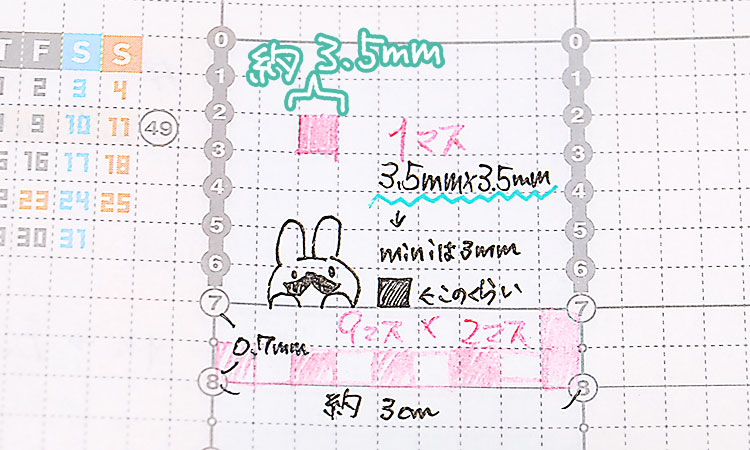 T F S S
2 3 4
9 10 11
16 17 18
23 24 25
30 31
49
0 0
1 1
2 2
3 3
4 4
5 5
6 6
7 7
8 8
約 3.5mm
1マス
3.5mm×3.5mm
↓
miniは3mm
←このくらい
9マス × 2マス
0.7mm
約 3cm